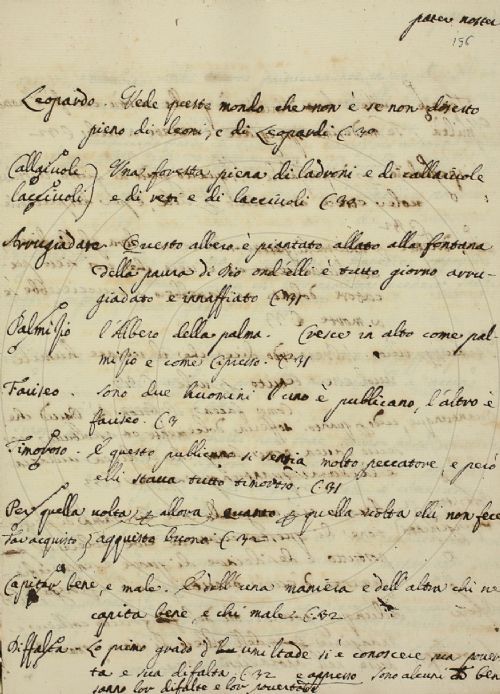 pater noster
196
Leopardo. Vede queste mondo che non è se non diserto
pieno di leoni, e di Leopardi C. 30
Callaiuole Una foresta piena di ladroni e di callaiuole
lacciuoli e di reti e di lacciuoli C. 30
Arrugiadare Questo albero è piantato allato alla fontana
della paura di Dio ond'elli è tutto giorno arru-
giadato e innaffiato C. 31
Palmisio l'Albero della palma. Cresce in alto come pal-
misio e come C. 31
Fariseo. sono due huomini l'uno è publicano, l'altro è
fariseo. C. 3
Timoroso. E questo publicano si sentia molto peccatore, e però
elli stava tutto timoroso. C. 31
Per quella volta, allora quella volta chi non fece
Far acquisto acquisto buono C. 32
Capitar bene, e male. dell'una maniera e dell'altra chi n
capita bene, e chi male. C. 32
Diffalta. Lo primo grado d' umiltade si è conoscere sua pover
ta e sua difalta C. 32 e appresso sono alcuni ben
sanno lor difalte e lor povertade